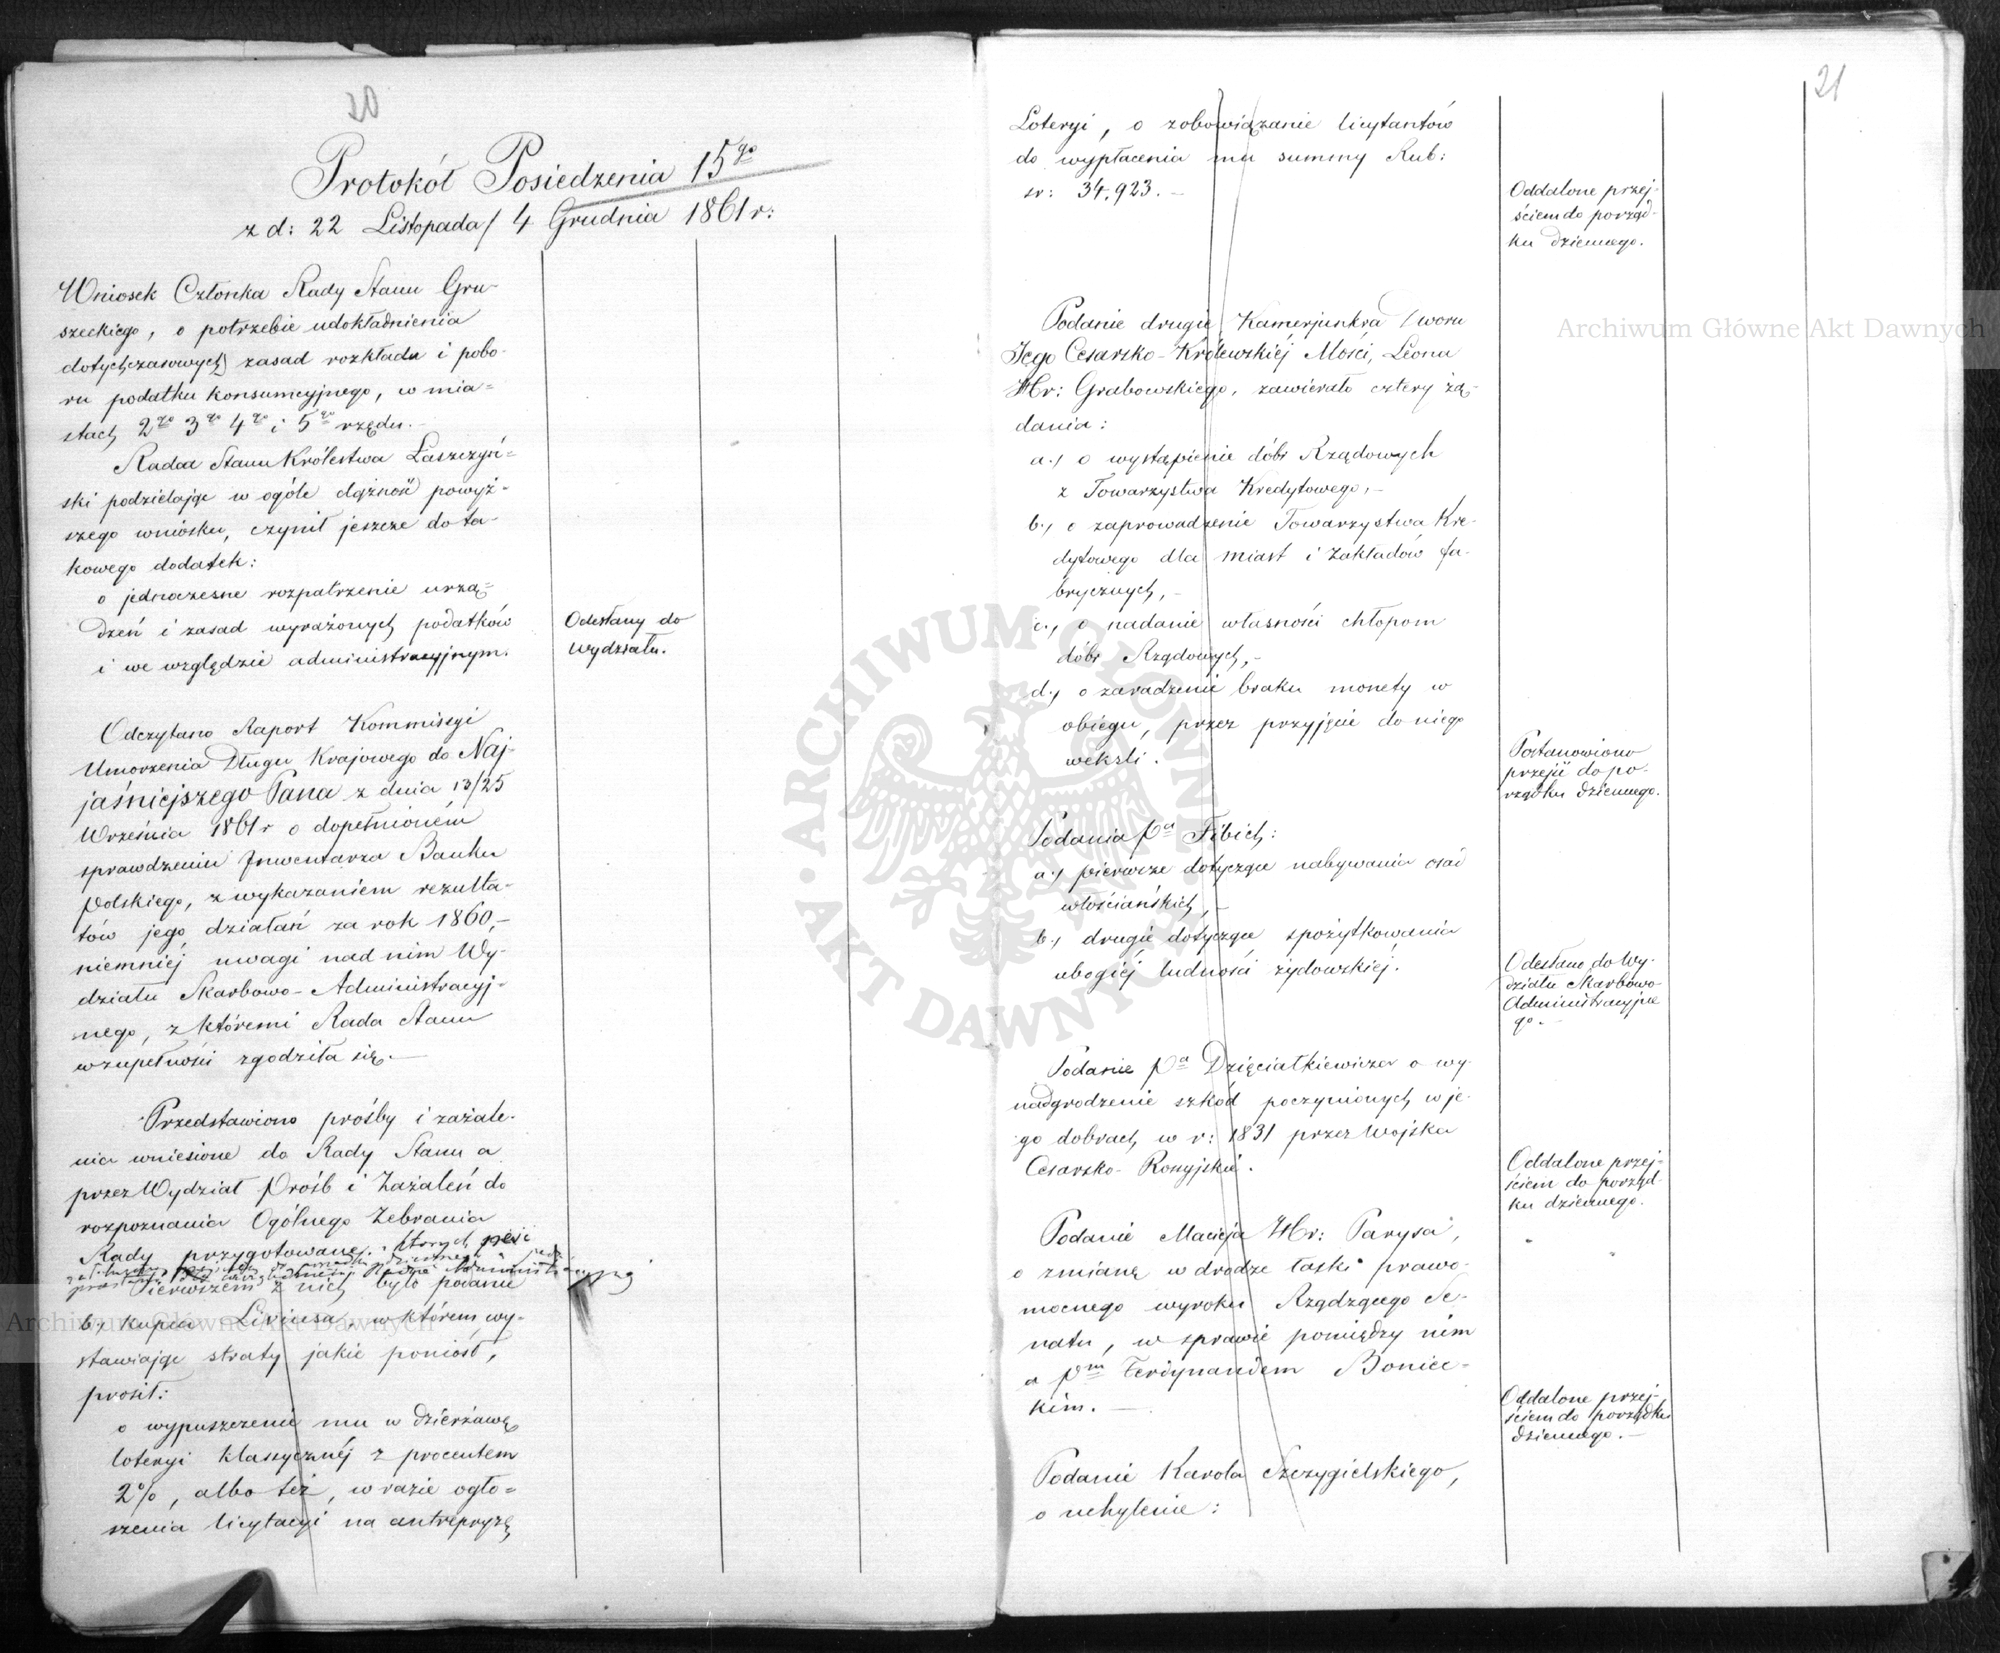 20
Protokół Posiedzenia 15go
z d: 22 Listopada/ 4 Grudnia 1861 r:
Wniosek Członka Rady Stanu Gru-
szeckiego, o potrzebie udokładnienia
dotychczasowych zasad rozkładu i pobo-
ru podatku konsumcyjnego, w mia=
stach 2go 3go 4go i 5go rzędu.-
Radca Stanu Królestwa Łaszczyń=
ski podzielając w ogóle dążność powyż-
szego wniosku, czynił jeszcze do ta-
kowego dodatek:
o jednoczesne rozpatrzenie urzą=
dzeń i zasad wyrażonych podatków
i we względzie administracyjnym.
Odesłany do
Wydziału.
Odczytano Raport Kommissyi
Umorzenia Długu Krajowego do Naj-
jaśniejszego Pana z dnia 13/25
Września 1861 r o dopełnioném
sprawdzeniu Inwentarza Banku
Polskiego, z wykazaniem rezulta-
tów jego działań za rok 1860,-
niemniéj uwagi nad nim Wy-
działu Skarbowo-Administracyj-
nego, z któremi Rada Stanu
w zupełności zgodziła się.-
Przedstawiono prośby i zażale-
nia wniesione do Rady Stanu a
przez Wydział Próśb i Zażaleń do
rozpoznania Ogólnego Zebrania
Rady przygotowane. których
Pierwszem z nich było podanie
b. kupca Liviusa, w którém wy-
stawiając straty jakie poniosł,
prosił:
o wypuszczenie mu w dzierżawę
loteryi klassycznéj z procentem
2%, albo też, w razie ogło=
szenia licytacyi na antrepryzę
21
Loteryi, o zobowiązanie licytantów
do wypłacenia mu summy Rub:
sr: 34,923.-
Oddalone przej-
ściem do porząd-
ku dziennego.
Podanie drugie Kamerjunkra Dworu
Jego Cesarsko-Królewskiéj Mości, Leona
Hr: Grabowskiego, zawierało cztery żą-
dania:
a., o wystąpienie dóbr Rządowych
z Towarzystwa Kredytowego,-
b., o zaprowadzenie Towarzystwa Kre-
dytowego dla miast i Zakładów fa-
brycznych,-
c., o nadanie własności chłopom
dóbr Rządowych,-
d., o zaradzenie braku monety w
obiegu, przez przyjęcie do niego
weksli.
Postanowiono
przejść do po-
rządku dziennego.
Podania Pa Fibich:
a., pierwsze dotyczące nabywania osad
włościańskich,-
b., drugie dotyczące spożytkowania
ubogiéj ludności żydowskiéj.
Odesłano do Wy-
działu Skarbowo-
Administracyjne
go.-
Podanie Pa Dzięciatkiewicza o wy-
nadgrodzenie szkód poczynionych w je-
go dobrach w r: 1831 przez Wojska
Cesarsko-Rossyjskie.
Oddalone przej-
ściem do porząd-
ku dziennego.
Podanie Macieja Hr: Parysa,
o zmianę w drodze łaski prawo-
mocnego wyroku Rządzącego Se-
natu, w sprawie pomiędzy nim
a Pm Ferdynandem Boniec=
kim.-
Oddalone przej-
ściem do porządku
dziennego.-
Podanie Karola Szczygielskiego,
o uchylenie:
Archiwum Główne Akt Dawnych
Archiwum Główne Akt Dawnych
ARCHIWUM GŁÓWNE · AKT DAWNYCH ·